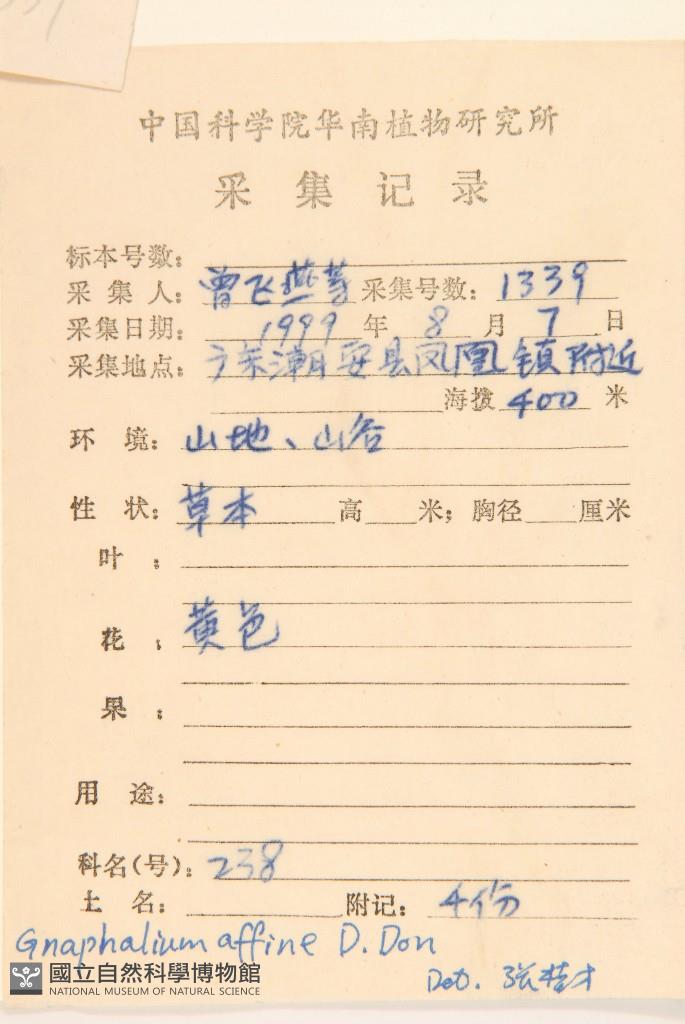 中国科学院华南植物研究所
采集记录
标本号数:
采集人: 曾飞燕等 采集号数: 1339
采集日期: 1999 年 8 月 7 日
采集地点: 广东潮安县凤凰镇附近
海拨 400 米
环境: 山地、山谷
性状: 草本 高 米; 胸径 厘米
叶:
花: 黄色
果:
用途:
科名(号): 238
土名: 附记: 4份
Gnaphalium affine D. Don
Det. 张桂才
國立自然科學博物館
NATIONAL MUSEUM OF NATURAL SCIENCE